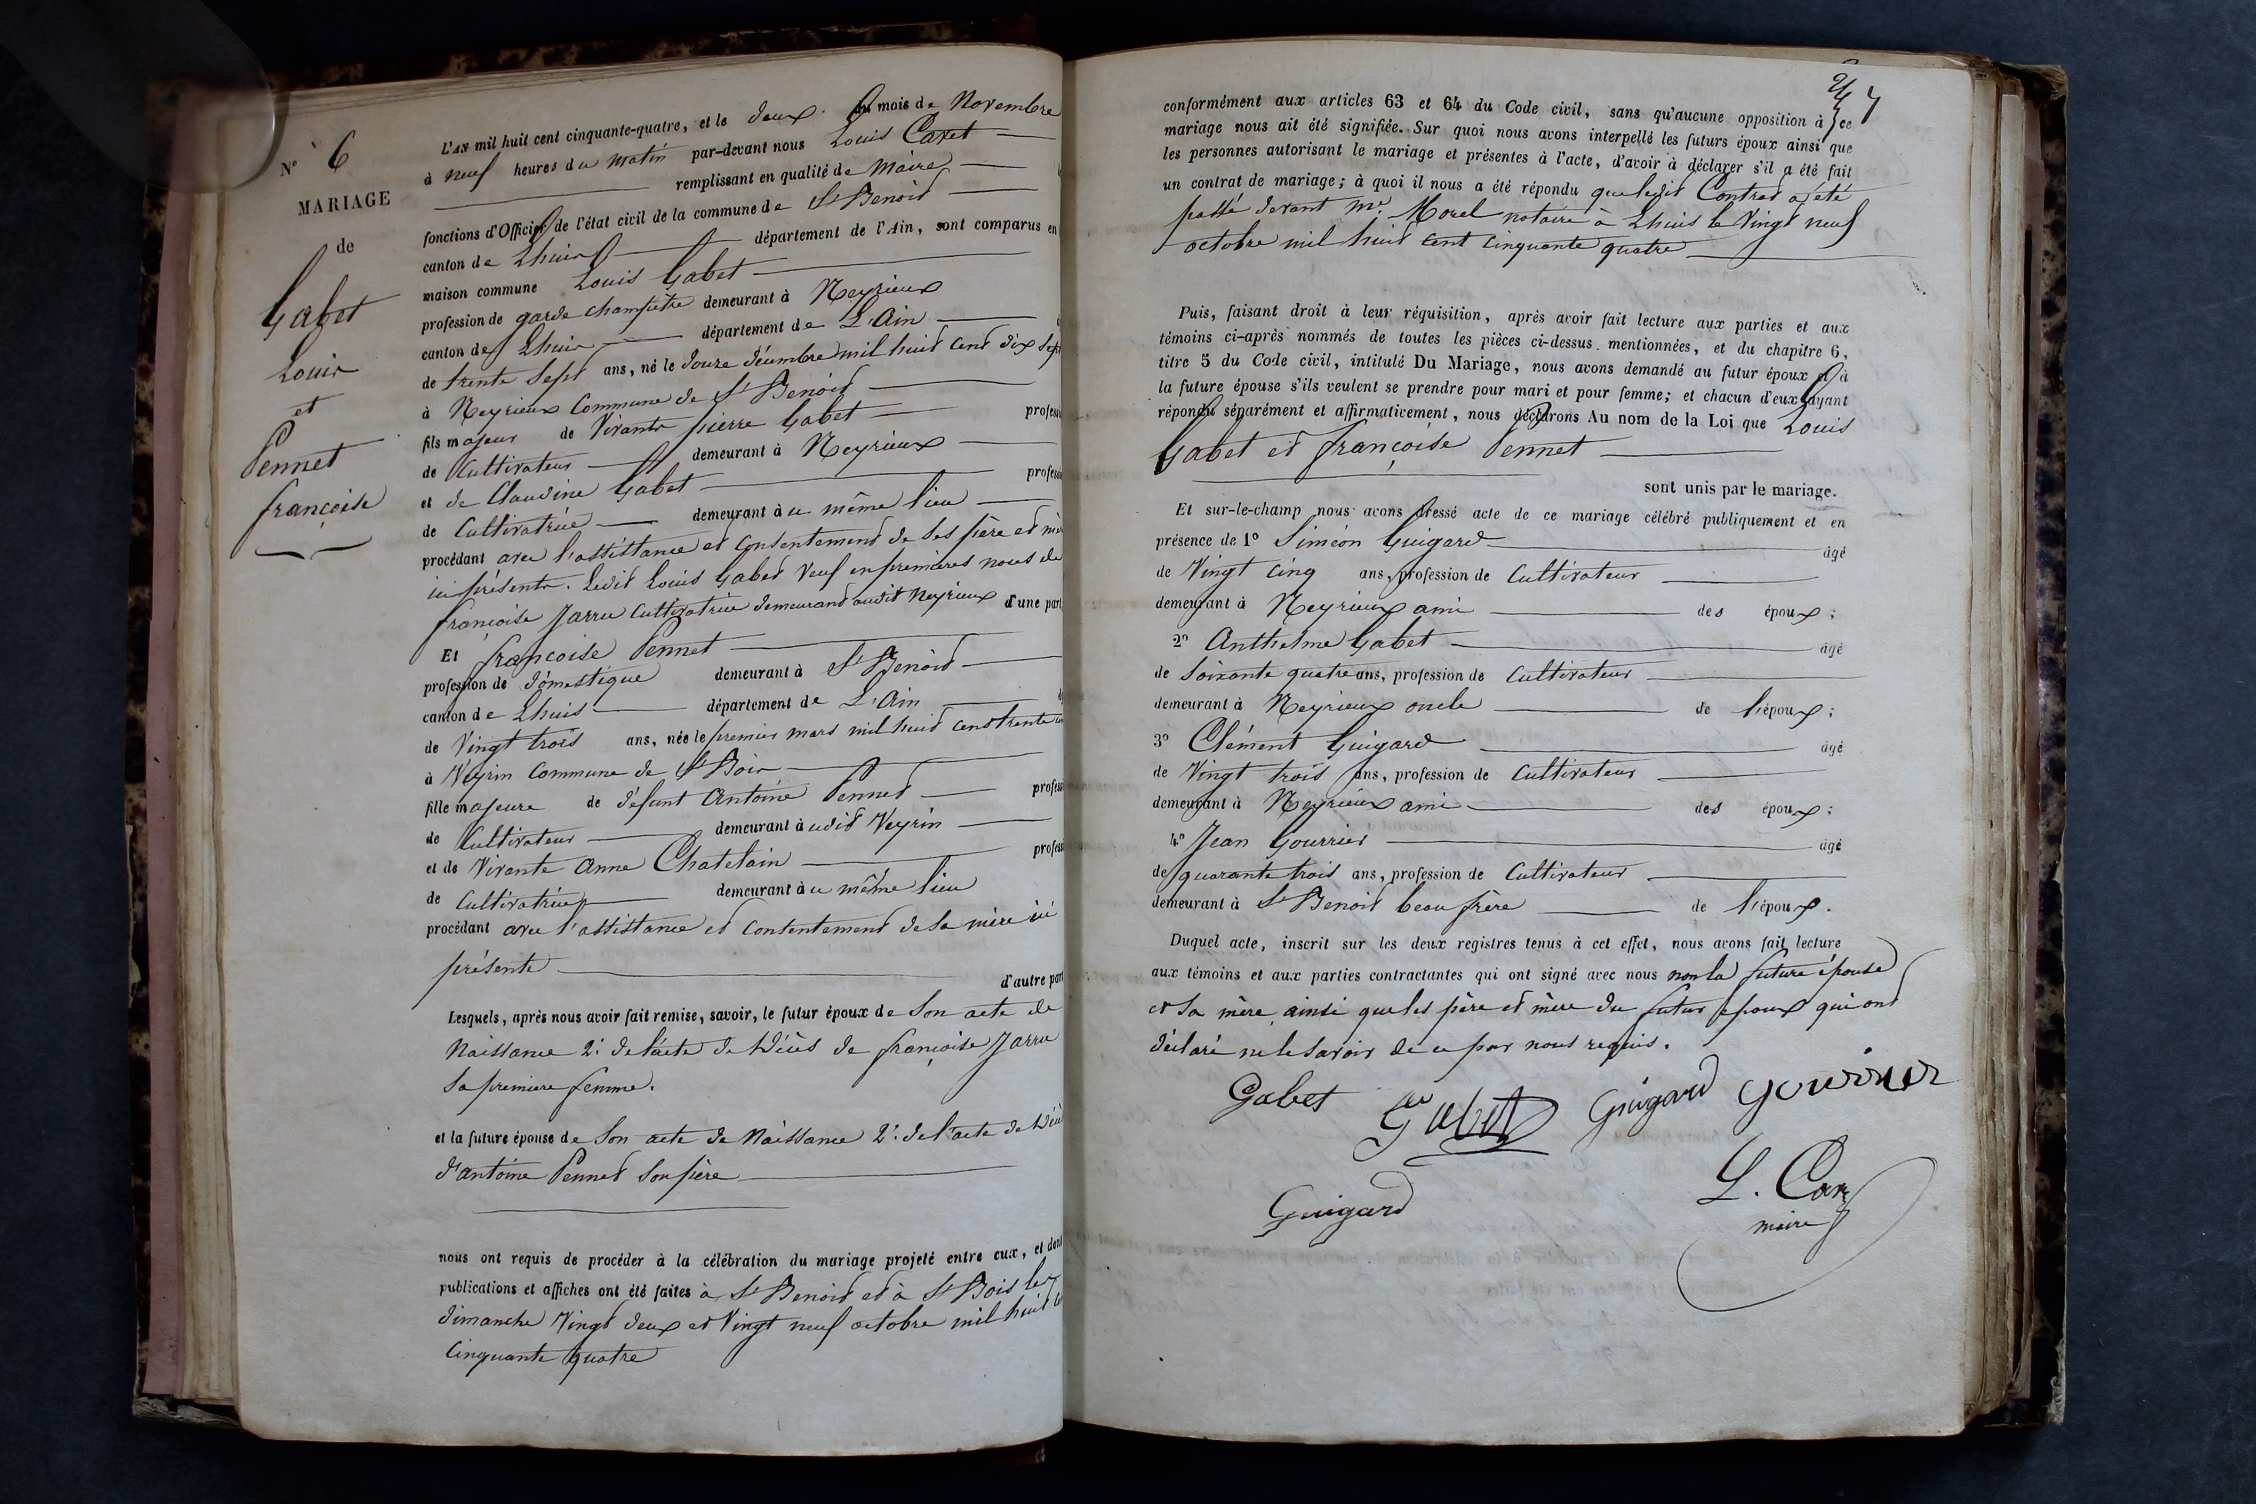 N° 6
MARIAGE
de
Gabet
Louis
et
Pennet
françoise
L'AN mil huit cent cinquante-quatre, et le deux du mois de Novembre
à neuf heures du matin par-devant nous Louis Caret
remplissant en qualité de Maire
fonctions d'Officier de l'état civil de la commune de St Benoid
canton de Lhuis département de l'Ain, sont comparus en
maison commune Louis Gabet
profession de garde champêtre demeurant à Neyrieux
canton de Lhuis département de L'Ain
de trente Sept ans, né le douze décembre mil huit cent dix Sept
à Neyrieux Commune de St Benoid
fils majeur de Vivants pierre Gabet profess
de Cultivateur demeurant à Neyrieux
et de Claudine Gabet profess
de Cultivatrice demeurant à u même lieu
procédant avec l'assistance et Consentement de Ses père et mè
ici présents. Ledit Louis Gabet Veuf en premières noces de
françoise Jarru Cultivatrice demeurant audit Neyrieux d'une part,
Et françoise Pennet
profession de domestique demeurant à St Benoid
canton de Lhuis département de L'Ain
de Vingt trois ans, née le premier mars mil huit cent trente
à Veyrin Commune de St Bois
fille majeure de défunt Antoine Pennet profess
de Cultivateur demeurant à udit Veyrin
et de Vivante Anne Chatelain profess
de Cultivatrice demeurant à u même lieu
procédant avec l'assistance et Contentement de Sa mère ici
présente
d'autre part
Lesquels, après nous avoir fait remise, savoir, le futur époux de Son acte de
Naissance 2.° de l'acte de Décès de françoise Jarru
Sa premiere femme.
et la future épouse de Son acte de Naissance 2.° de l'acte de Décè
d'antoine Pennet Son père
nous ont requis de procéder à la célébration du mariage projeté entre eux, et dont
publications et affiches ont été faites à St Benoid et à St Bois les
dimanche Vingt deux et Vingt neuf octobre mil huit
Cinquante quatre
7
conformément aux articles 63 et 64 du Code civil, sans qu'aucune opposition à ce
mariage nous ait été signifiée. Sur quoi nous avons interpellé les futurs époux ainsi que
les personnes autorisant le mariage et présentes à l'acte, d'avoir à déclarer s'il a été fait
un contrat de mariage; à quoi il nous a été répondu que ledit Contrat a été
passé devant me. Morel notaire à Lhuis le Vingt neuf
octobre mil huit cent cinquante quatre
Puis, faisant droit à leur réquisition, après avoir fait lecture aux parties et aux
témoins ci-après nommés de toutes les pièces ci-dessus mentionnées, et du chapitre 6,
titre 5 du Code civil, intitulé Du Mariage, nous avons demandé au futur époux et à
la future épouse s'ils veulent se prendre pour mari et pour femme; et chacun d'eux ayant
répondu séparément et affirmativement, nous déclarons Au nom de la Loi que Louis
Gabet et françoise Pennet
sont unis par le mariage.
Et sur-le-champ nous avons dressé acte de ce mariage célébré publiquement et en
présence de 1° Siméon Guigard âgé
de Vingt cinq ans, profession de Cultivateur
demeurant à Neyrieux ami des époux;
2° Anthelme Gabet âgé
de Soixante quatre ans, profession de Cultivateur
demeurant à Neyrieux oncle de l'époux;
3° Clément Guigard âgé
de Vingt trois ans, profession de Cultivateur
demeurant à Neyrieux ami des époux;
4° Jean Gourrier âgé
de quarante trois ans, profession de Cultivateur
demeurant à St Benoit beau frère de l'époux.
Duquel acte, inscrit sur les deux registres tenus à cet effet, nous avons fait lecture
aux témoins et aux parties contractantes qui ont signé avec nous non la future épouse
et Sa mère ainsi que les père et mère du futur époux qui ont
déclaré ne le Savoir de ce par nous requis.
Gabet Gabet Guigard Gourrier
Guigard
L. Car
maire